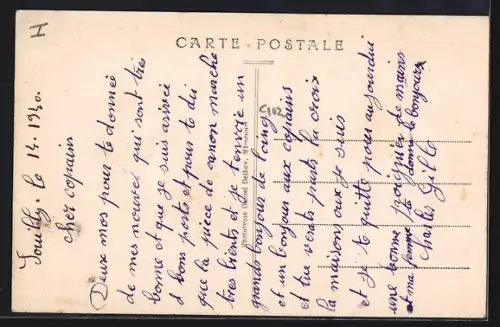 I
CARTE POSTALE
Souilly. le 14. 1940.
cher copain
Deux mos pour te donnée
de mes nouvel qui sont très
bonne et que je suis arrivé
a bons ports et pour te di
que la pièce de canon marche
tres bients et je t'envoie un
grands bonjour de loing
et un bonjour aux copains
et tu verats pards la croix
la maisons oux je suis
et je te quitte pour aujourdui
une bonne poignier de mains
et ma femme te donne le bonjours
Charles Gille